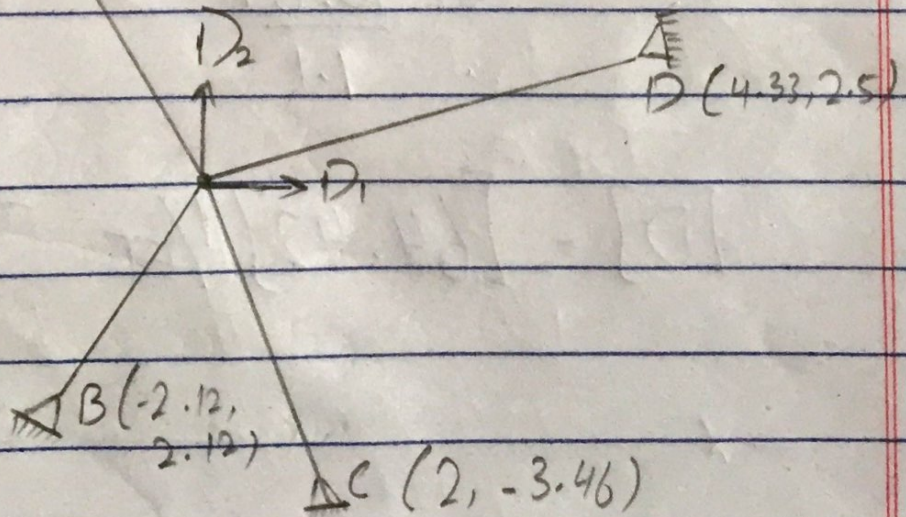 D2
D (4.33, 2.5)
D1
B (-2.12,
2.12)
C (2, -3.46)